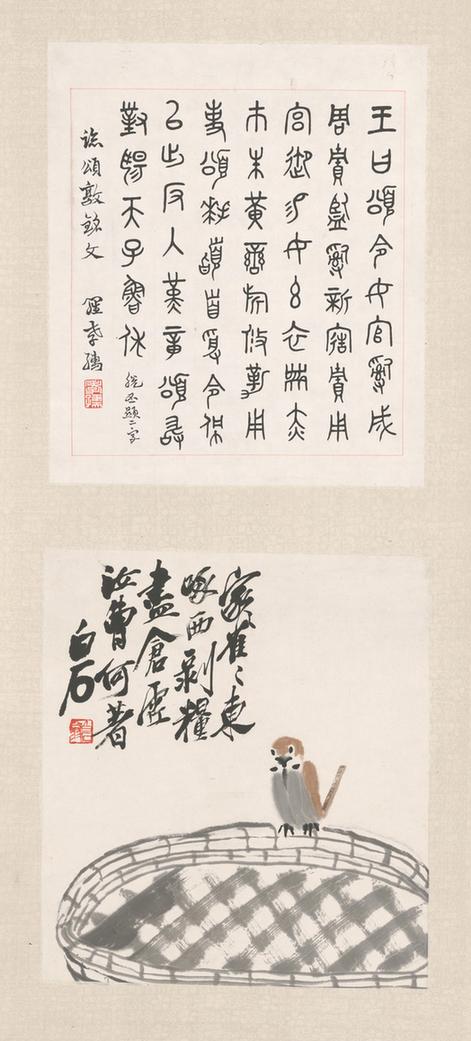 王曰頌令女官嗣成
周貯監嗣新造貯用
宮御易女玄衣黹赤
市朱黃鑾旂攸勒用
事頌拜稽首受令佩
以出反入堇章頌敢
對揚天子魯休 脫丕顯二字
臨頌敦銘文 羅
家〻雀〻東
啄西剝糧
盡倉虛
汝曹何著
白石